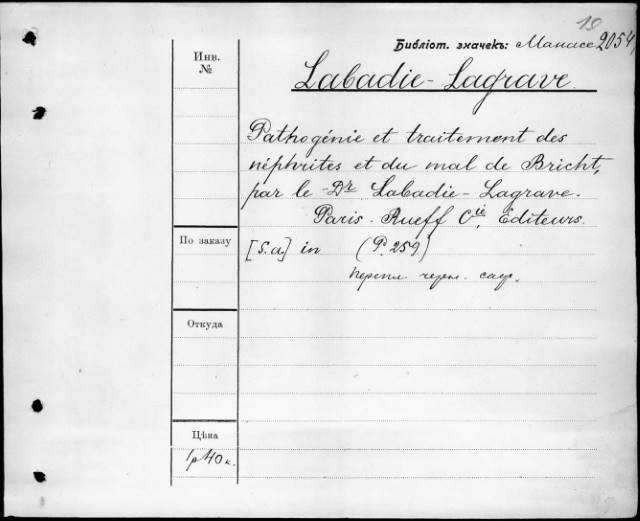 19
Библіот. значекъ: Манасе 2054
Инв.
№
Labadie-Lagrave
Pathogénie et traitement des
néphrites et du mal de Bricht,
par le Dr Labadie-Lagrave.
Paris. Rueff Cie, Éditeurs.
По заказу
[S.a] in (P. 259)
перепл. черн. сафь.
Откуда
Цѣна
1р 40 к.